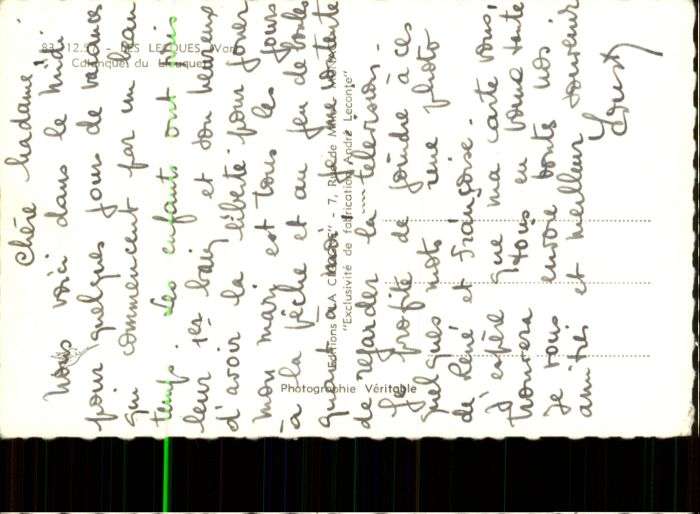 Chère Madame
Nous voici dans le midi
pour quelques jours de vacances
qui commencent par un beau
temps. Les enfants ont pris
leur 1er bain et son heureux
d'avoir la liberté pour jouer
mon mari est tous les jours
à la pêche et au jeu de boules
quant à moi je me contente
de regarder la télévision.
Je profite de joindre à ces
quelques mots une photo
de René et Françoise.
J'espère que ma carte vous
trouvera tous en bonne santé
Je vous envoie tous nos
amitiés et meilleur souvenir
83.12.5 - LES LECQUES (Var)
Calanques du
Photographie Véritable
Editions - 7, Rue de
"Exclusivité de fabrication André Leconte"